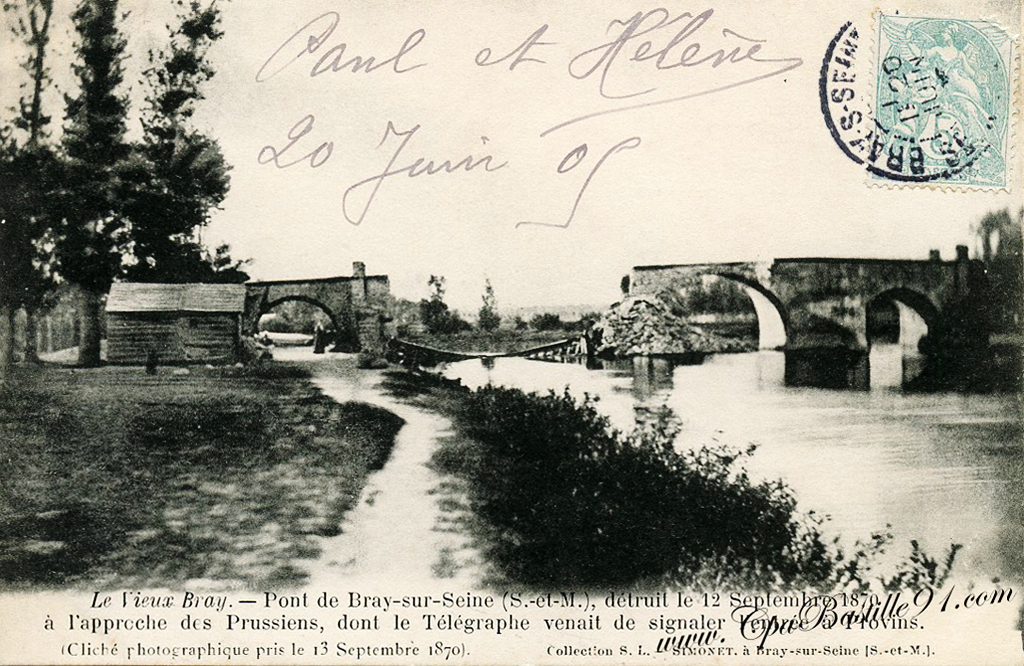 Paul et Hélène
20 Juin 05
BRAY-S-SEINE
Le Vieux Bray. — Pont de Bray-sur-Seine (S.-et-M.), détruit le 12 Septembre 1870,
à l'approche des Prussiens, dont le Télégraphe venait de signaler l'entrée à Provins.
(Cliché photographique pris le 13 Septembre 1870).
Collection S. L. SIMONET. à Bray-sur-Seine [S.-et-M.].
www. CpaBastille91.com